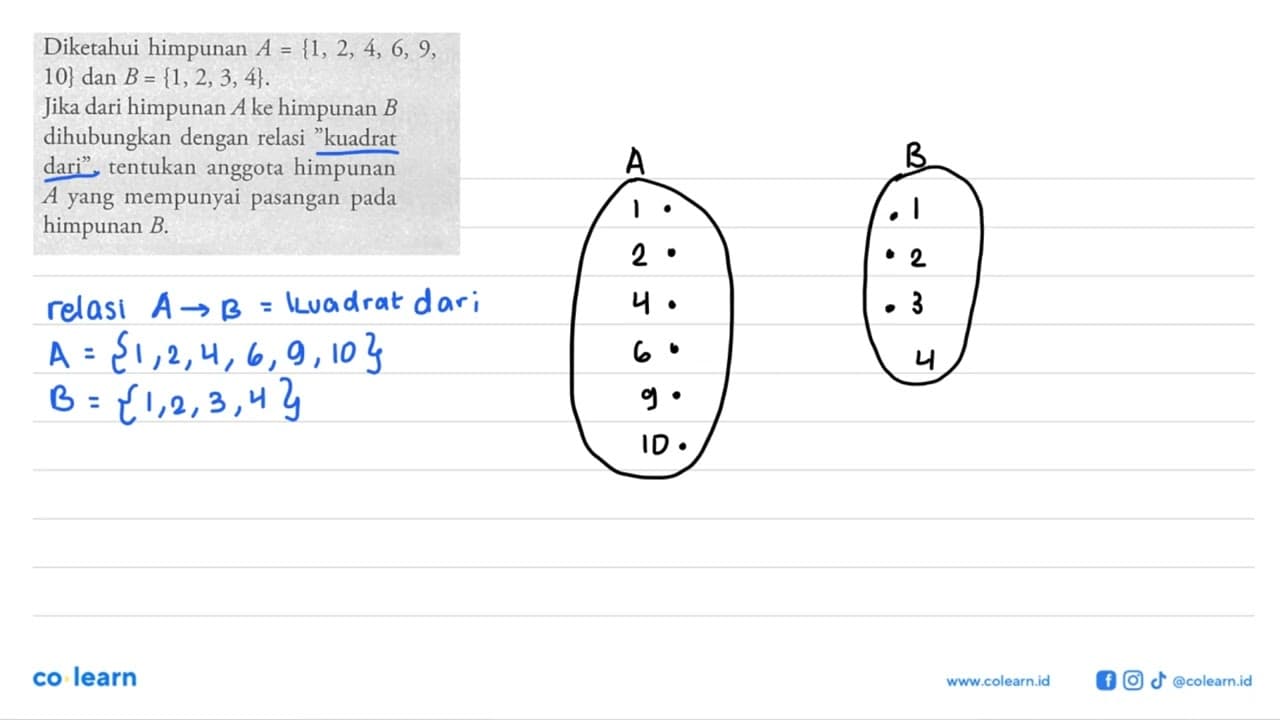 Diketahui himpunan A = {1, 2, 4, 6, 9,
10} dan B = {1, 2, 3, 4}.
Jika dari himpunan A ke himpunan B
dihubungkan dengan relasi ”kuadrat
dari”, tentukan anggota himpunan
A yang mempunyai pasangan pada
himpunan B.
relasi A → B = kuadrat dari
A = {1, 2, 4, 6, 9, 10}
B = {1, 2, 3, 4}
A
1 •
2 •
4 •
6 •
9 •
10 •
B
• 1
• 2
• 3
4
co learn
www.colearn.id
@colearn.id